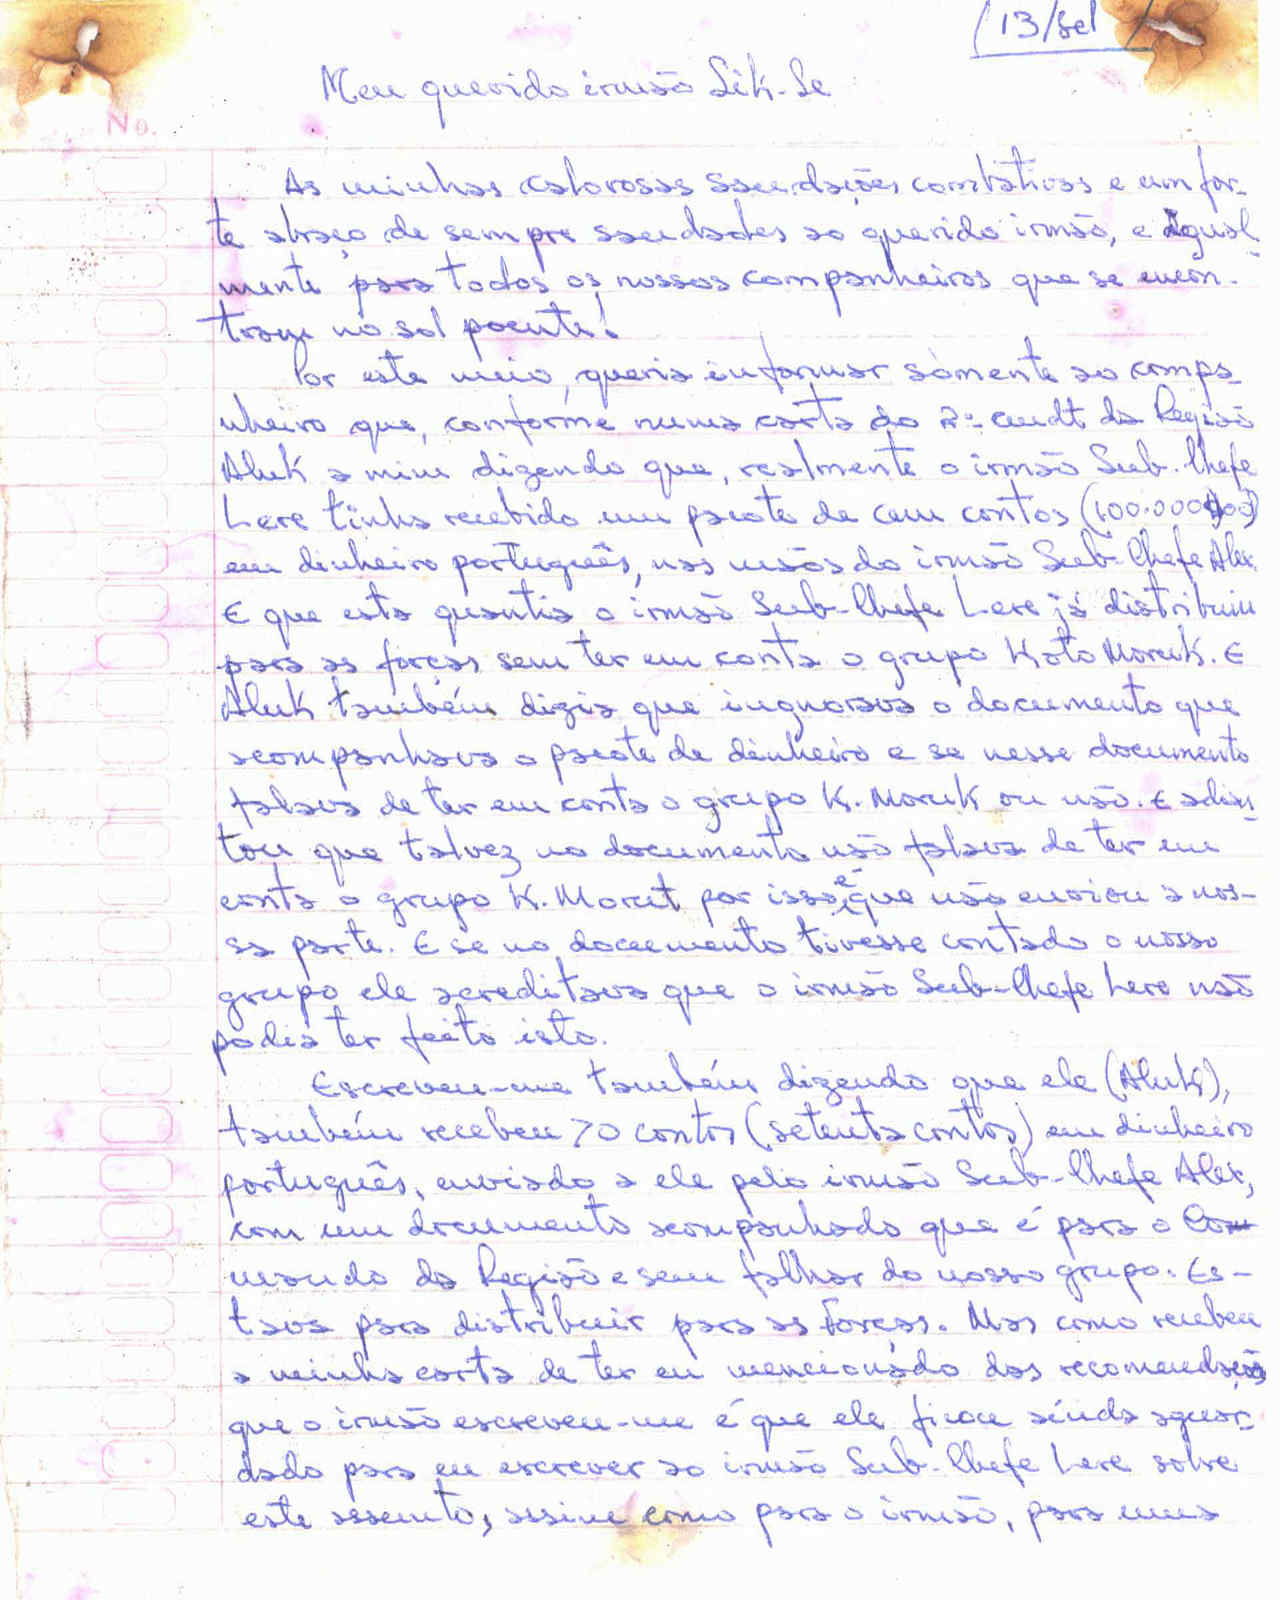 13/Set
Meu querido irmão Sik-Se
No.
As minhas calorosas saudações combativas e um for-
te abraço de sempre saudades ao querido irmão, e igual-
mente para todos os nossos companheiros que se encon-
tram no sol poente!
Por este meio, queria informar sòmente ao compa-
nheiro que, conforme numa carta do 2º cmdt da Região
Aluk a mim dizendo que, realmente o irmão Sub-Chefe
Lere tinha recebido um pacote de cem contos (100.000$00)
em dinheiro português, nas mãos do irmão Sub-Chefe Alex.
E que esta quantia o irmão Sub-Chefe Lere já distribuiu
para as forças sem ter em conta o grupo Koto Moruk. E
Aluk também dizia que ingnorava o documento que
acompanhava o pacote de dinheiro e se nesse documento
falava de ter em conta o grupo K. Moruk ou não. E adian-
tou que talvez no documento não falava de ter em
conta o grupo K. Morut por isso é que não enviou a nos-
sa parte. E se no documento tivesse contado o nosso
grupo ele acreditava que o irmão Sub-Chefe Lere não
podia ter feito isto.
Escreveu-me também dizendo que ele (Aluk),
também recebeu 70 contos (setenta contos) em dinheiro
português, enviado a ele pelo irmão Sub-Chefe Alex,
com um documento acompanhado que é para o Co
mando da Região e sem falhar do nosso grupo. Es-
tava para distribuir para as forças. Mas como recebeu
a minha carta de ter eu mencionado das recomendações
que o irmão escreveu-me é que ele ficou ainda aguar-
dado para eu escrever ao irmão Sub-Chefe Lere sobre
este assunto, assim como para o irmão, para uma